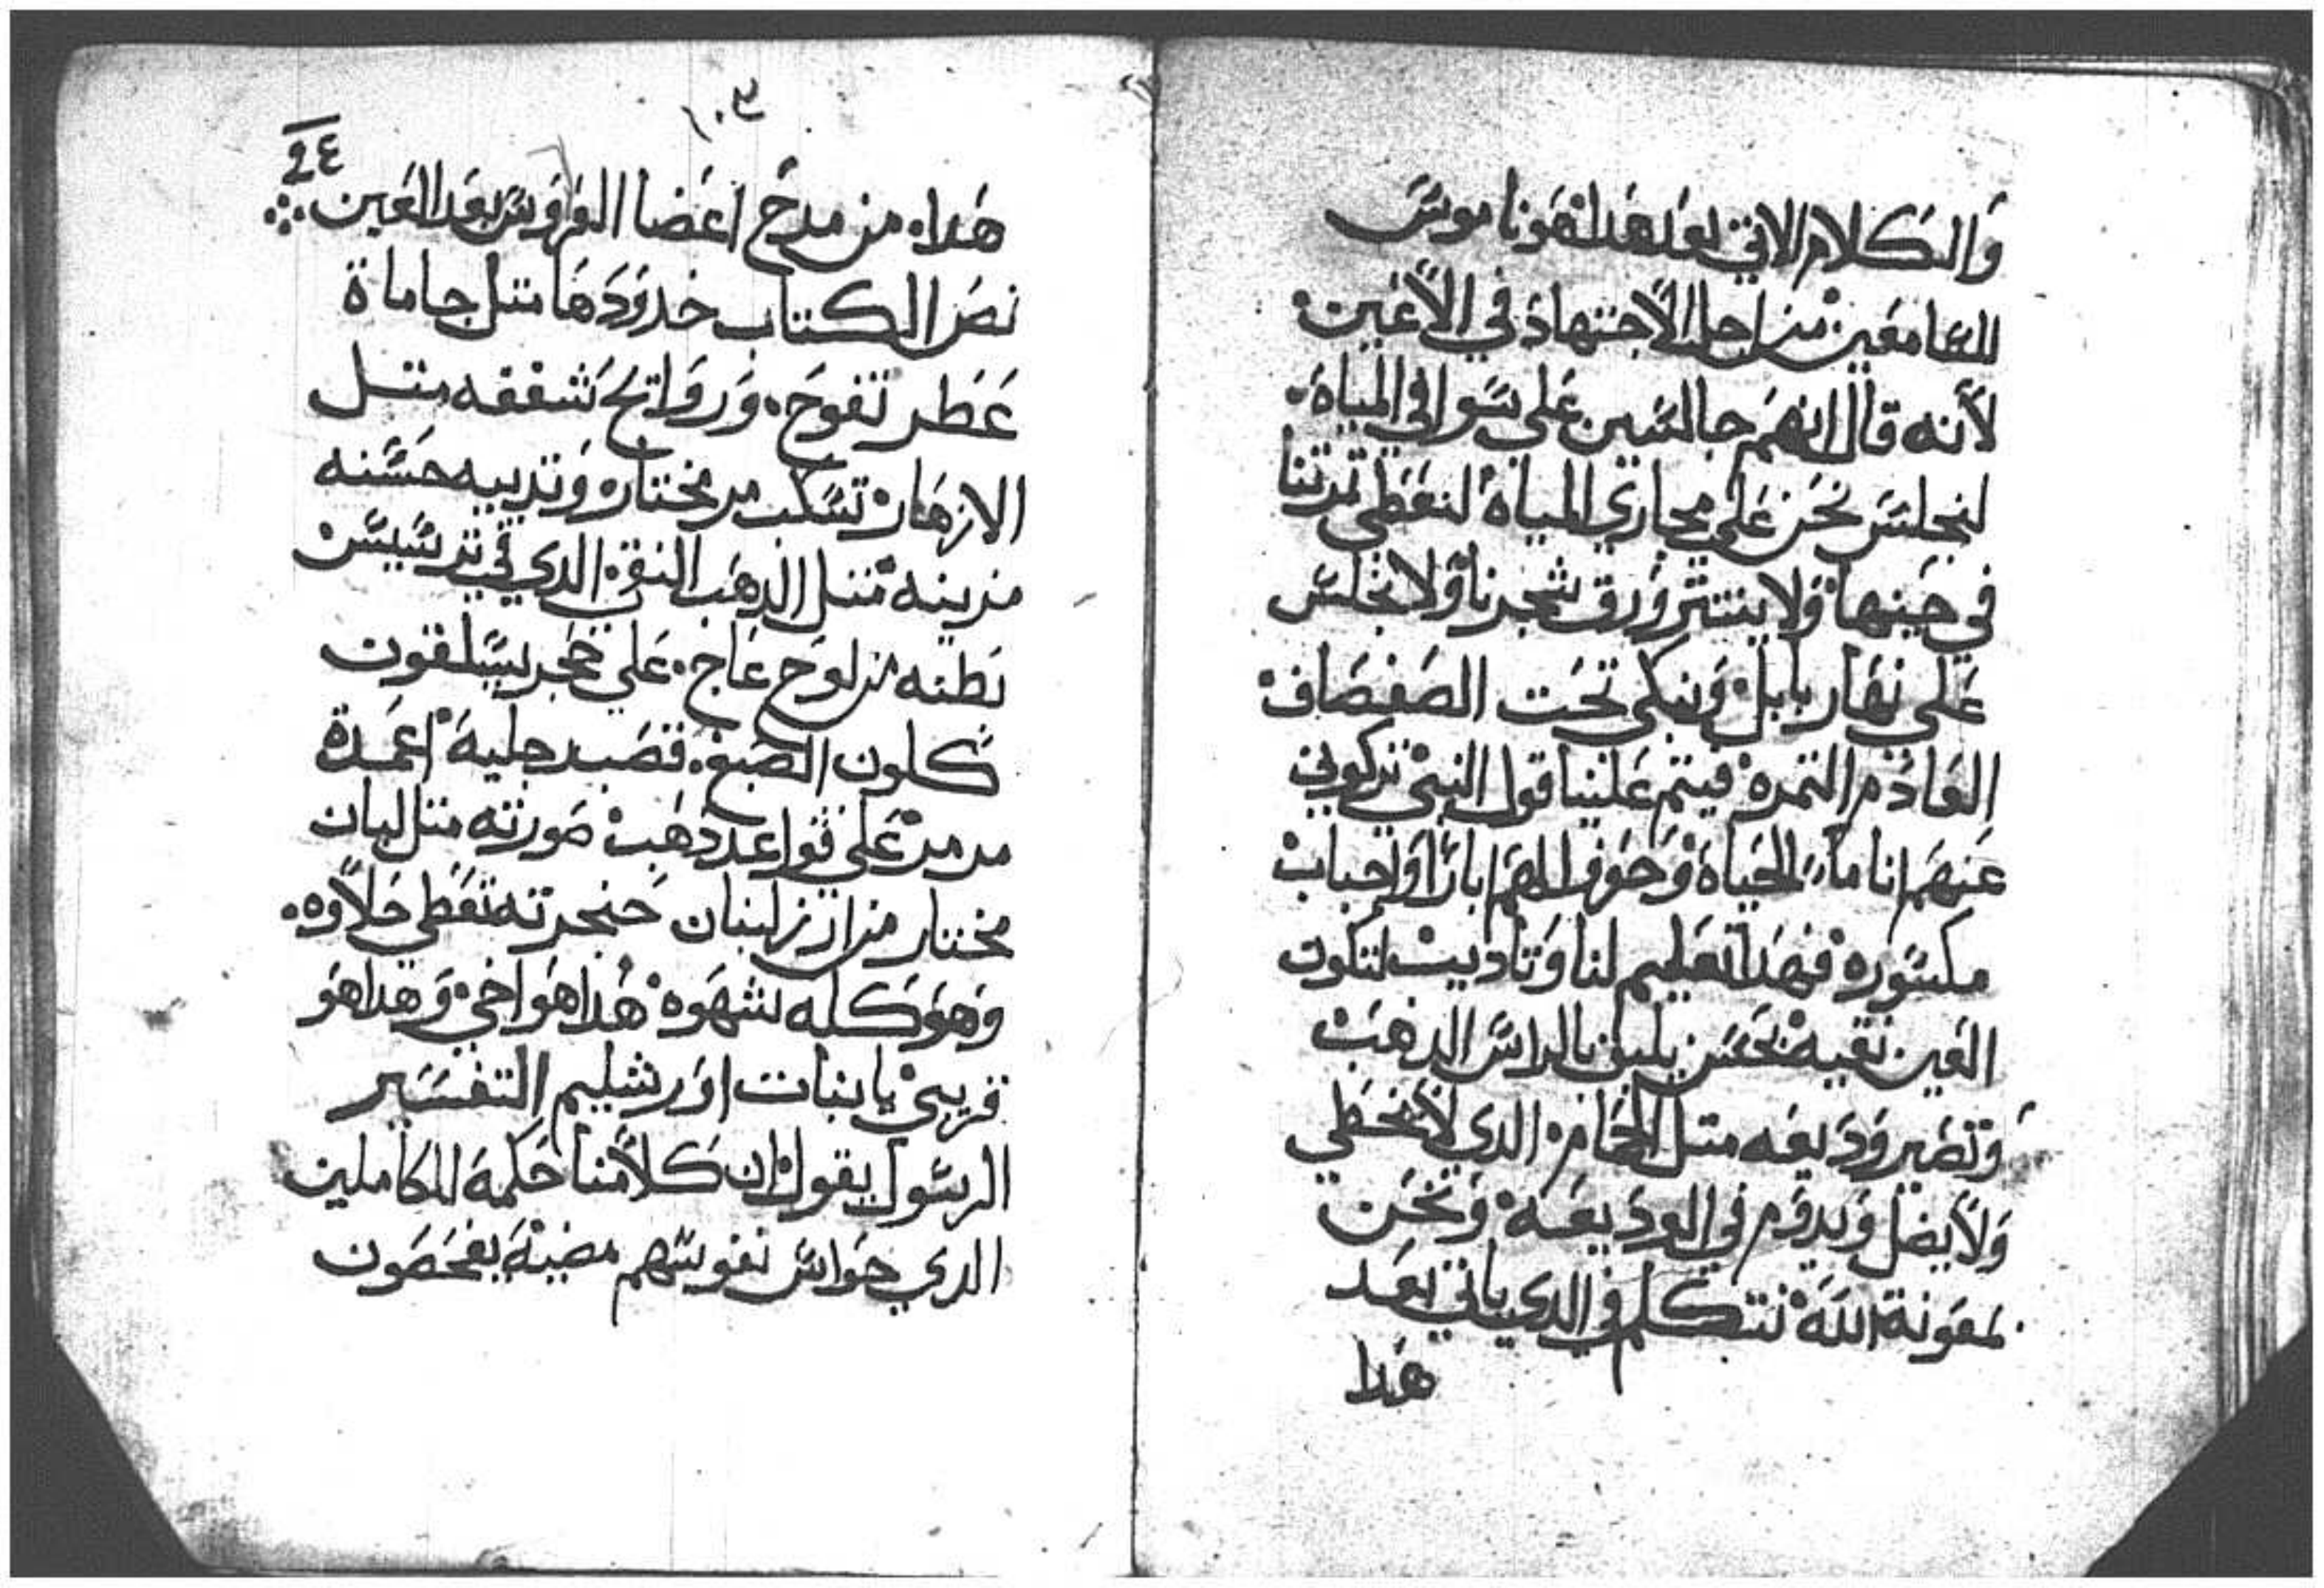 والكلام الاتي بعد هدا هو ناموس
للسامعين من اجل الاجتهاد في الاعين
لأنه قال انهم جالسين علي سواقي المياة
لنجلس نحن علي مجاري المياة لنعطي تمرتنا
في حينها ولا ينتتر ورق شجرنا ولا نجلس
علي نهار بابل ونبكي تحت الصفصاف
العادم التمره فيتم علينا قول النبي تركوني
عنهم انا ماء الحياة وحفرو لهم ابارا واجباب
مكسوره فهدا تعليم لنا وتاديب لتكون
العين نقيه بحسن يليق بالراس الدهب
وتصير وديعه متل الحمام الدي لا يخطي
ولا يضل ويدوم في الوديعه ونحن
بمعونة الله نتكلم في الدي ياتي بعد
هدا
١٠٣
٢٤
هدا من مدح اعضا العروس بعد العين
نص الكتاب خدودها متل جاماة
عطر تفوح وروايح شففه متل
الازهار تسكب مر مختار وتدييه حسنه
مزينه متل الدهب النقي الدي في ترسيس
بطنه من لوح عاج علي حجر سيلقون
كلون الصبغ قصب رجليه اعمدة
مرمر علي قواعد دهب صورته متل لبان
مختار من ارز لبنان حنجرته تعطي حلاوه
وهو كله شهوه هدا هو اخي وهدا هو
قريبي يا بنات اورشليم التفسير
الرسول يقول ان كلامنا حكمة للكاملين
الدي حواس نفوسهم مضيئة يفحصون